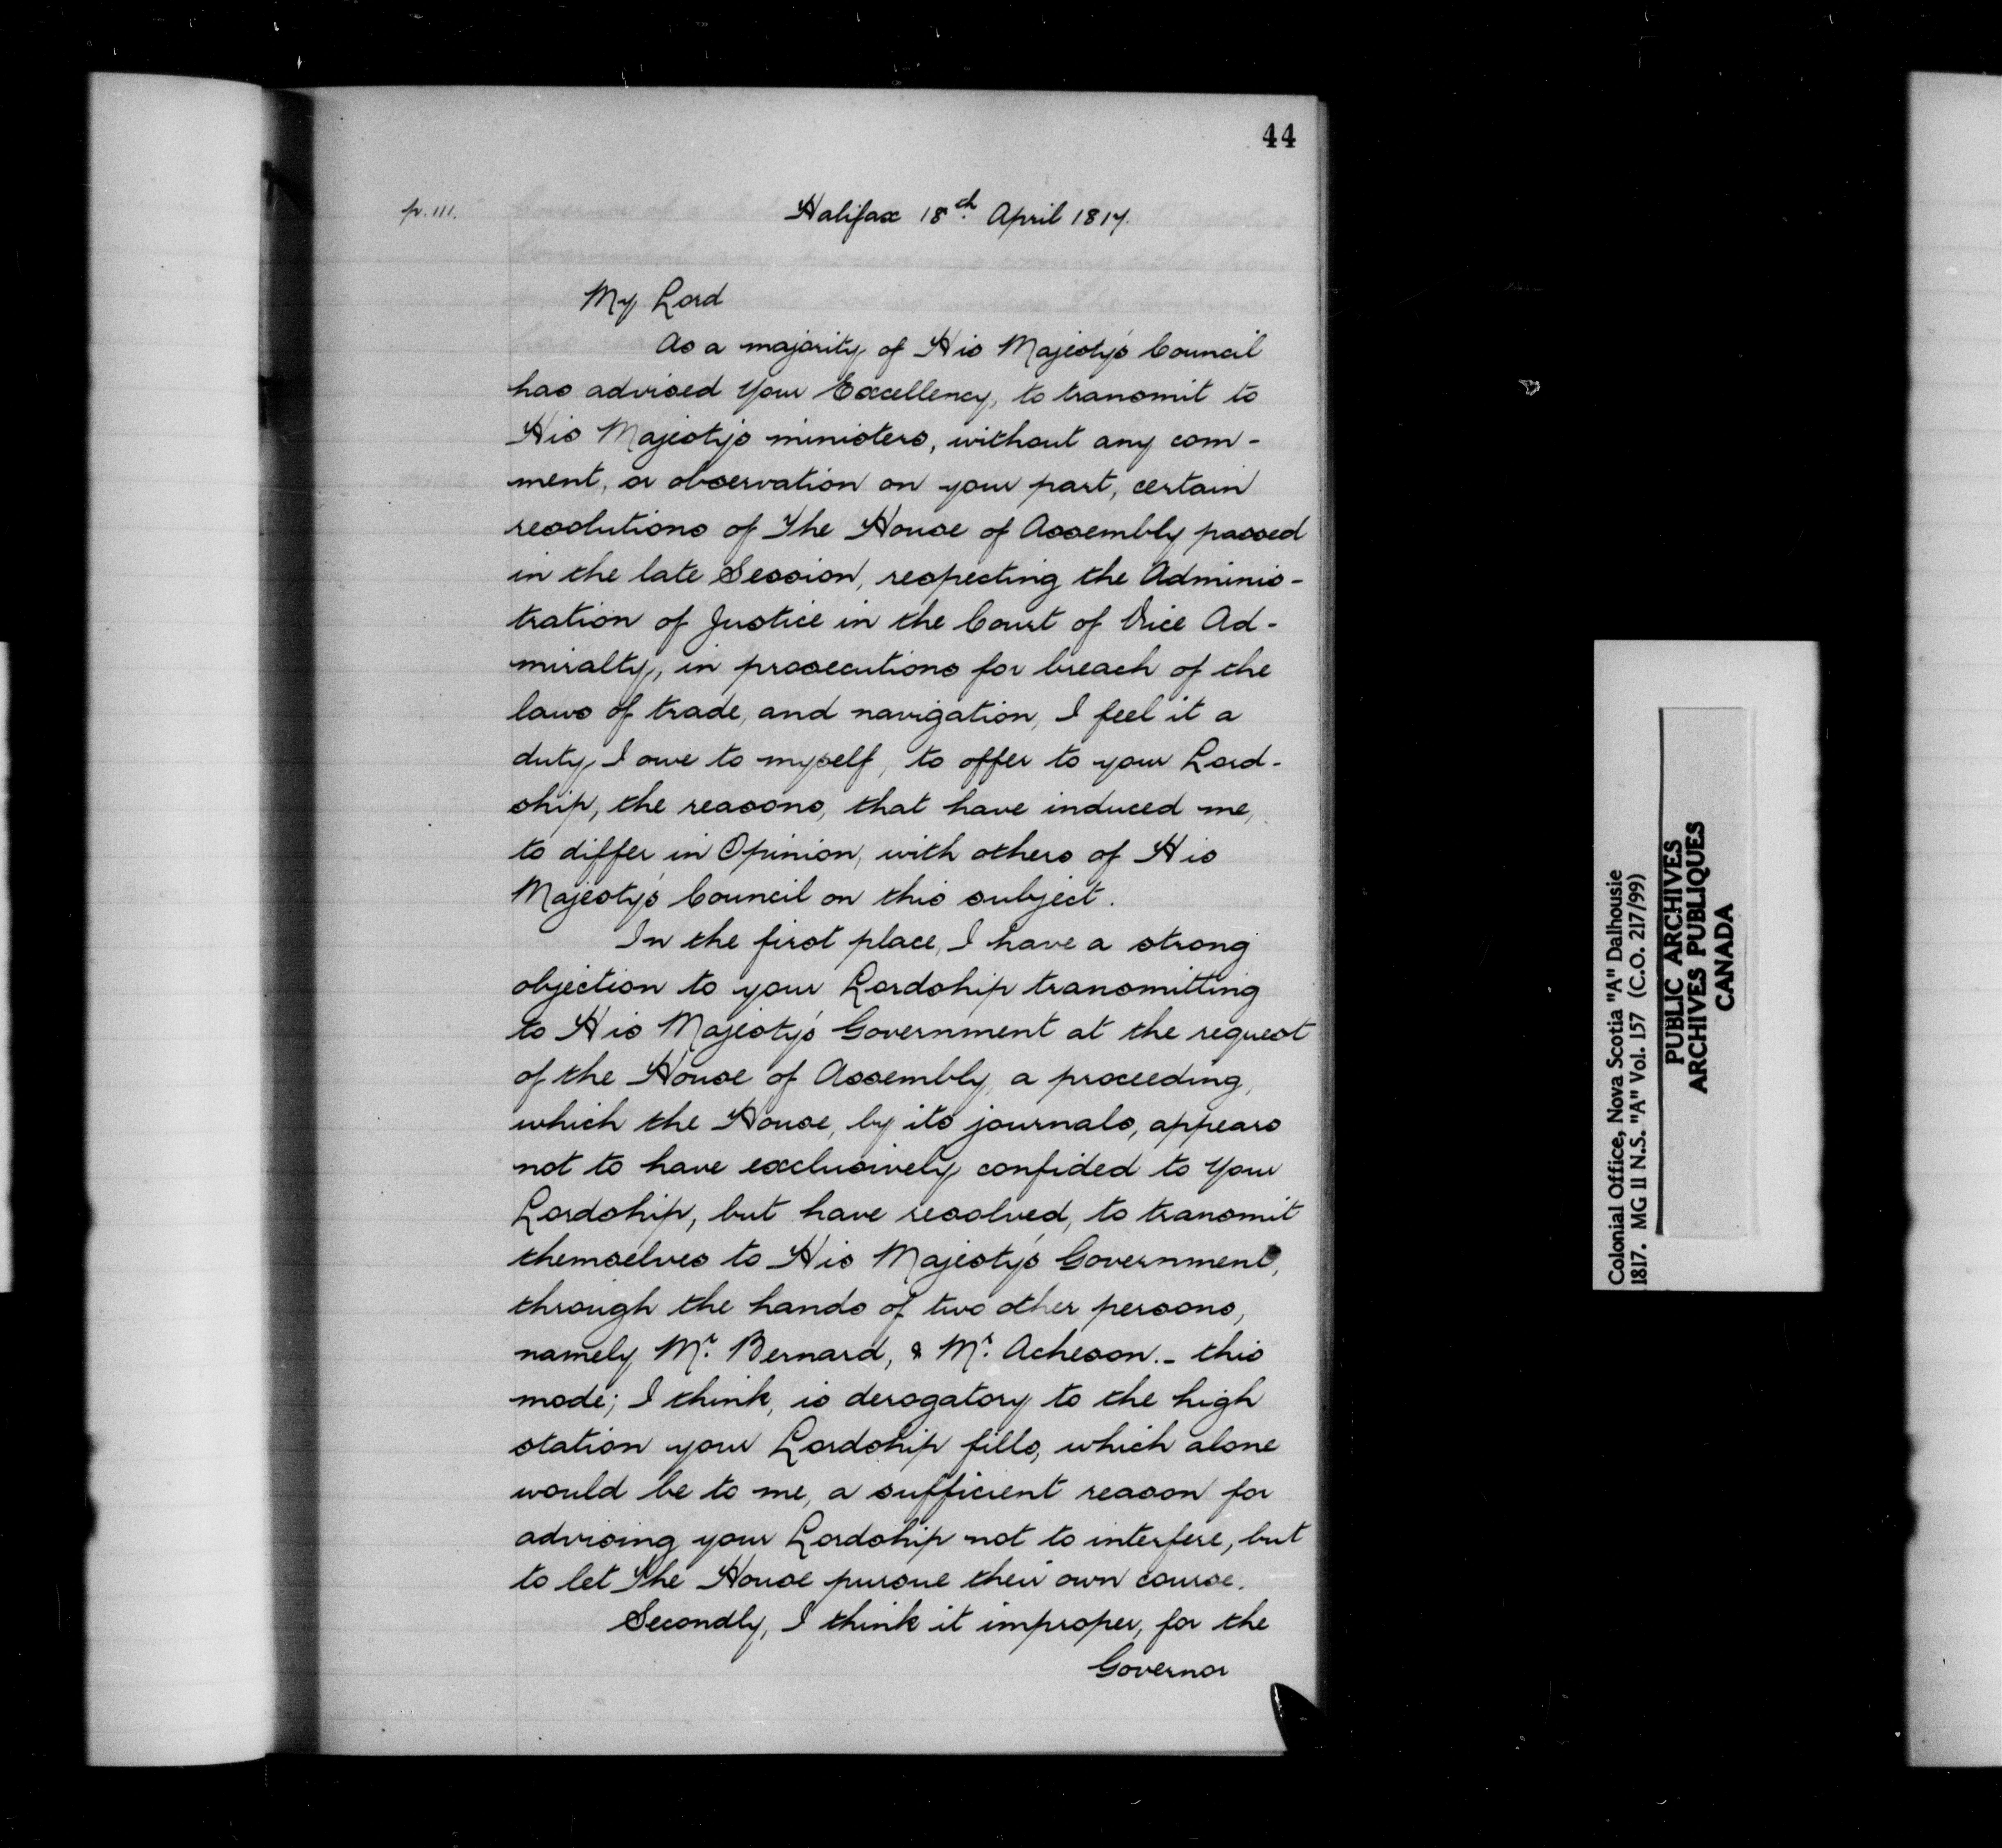 44
p. 111.
Halifax 18th. April 1817.
My Lord
As a majority of His Majesty's Council
has advised Your Excellency, to transmit to
His Majesty's ministers, without any com-
ment, or observation on your part, certain
resolutions of The House of Assembly passed
in the late Session, respecting the Adminis-
tration of Justice in the Court of Vice Ad-
miralty, in prosecutions for breach of the
laws of trade, and navigation, I feel it a
duty I owe to myself, to offer to your Lord-
ship, the reasons, that have induced me,
to differ in Opinion, with others of His
Majesty's Council on this subject.
In the first place, I have a strong
objection to your Lordship transmitting
to His Majesty's Government at the request
of the House of Assembly, a proceeding,
which the House, by its journals, appears
not to have exclusively confided to Your
Lordship, but have resolved, to transmit
themselves to His Majesty's Government,
through the hands of two other persons,
namely Mr. Bernard, & Mr. Acheson. - this
mode; I think, is derogatory to the high
station your Lordship fills, which alone
would be to me, a sufficient reason for
advising your Lordship not to interfere, but
to let The House pursue their own course.
Secondly, I think it improper, for the
Governor
Colonial Office, Nova Scotia "A" Dalhousie
1817. MG 11 N.S. "A" Vol. 157 (C.O. 217/99)
PUBLIC ARCHIVES
ARCHIVES PUBLIQUES
CANADA